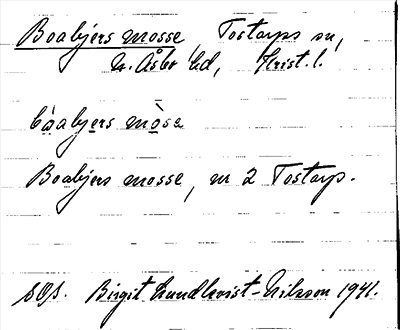 Boabjers mosse Tostarps sn,
N. Åsbo hd, Krist. l.
bòabjers mòsa
Boabjers mosse, nr 2 Tostarp.
SOS. Birgit Lundkvist-Nilsson 1941.